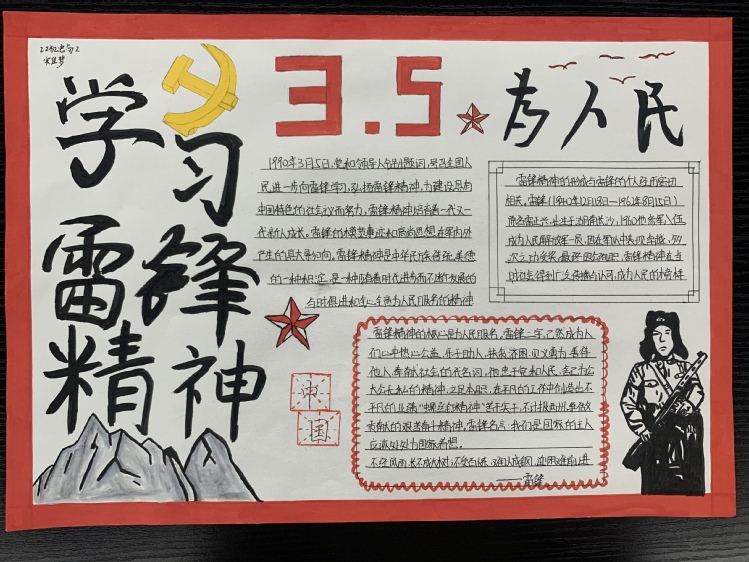 学习
雷锋
精神
3.5
为人民
1990年3月5日,党和领导人分别题词,号召全国人
民进一步向雷锋学习,弘扬雷锋精神,为建设具有
中国特色的社会主义而努力,雷锋精神培育着一代又一
代新人成长。雷锋的模范事迹和高尚思想在军内外
产生的具大影响。雷锋精神是中华民族传统美德
的一种积淀,是一种随着时代进步而不断发展的
与时俱进和全心全意为人民服务的精神
雷锋精神的形成与雷锋的个人经历密切
相关,雷锋(1940年12月18日—1962年8月15日)
原名雷正兴,出生于湖南长沙,1960他参军入伍
成为人民解放军一员,因在部队中表现卓越,多
次立功受奖,最终因公殉职,雷锋精神在当
时社会得到广泛传播与认可,成为人民的榜样
雷锋精神的核心是为人民服务,雷锋二字,已然成为人
们心中热心公益、乐于助人、扶贫济困、见义勇为、善待
他人、奉献社会的代名词,他忠于党和人民、舍己为公
大公无私的精神,立足本职、在平凡的工作中创造出不
平凡的业绩"螺丝钉精神"苦干实干,不计报酬,争做
贡献的艰苦奋斗精神,雷锋名言:我们是国家的主人
应该处处为国家着想。
不经风雨,长不成大树,不受百炼,难以成钢,迎困难前进
——雷锋
中
国